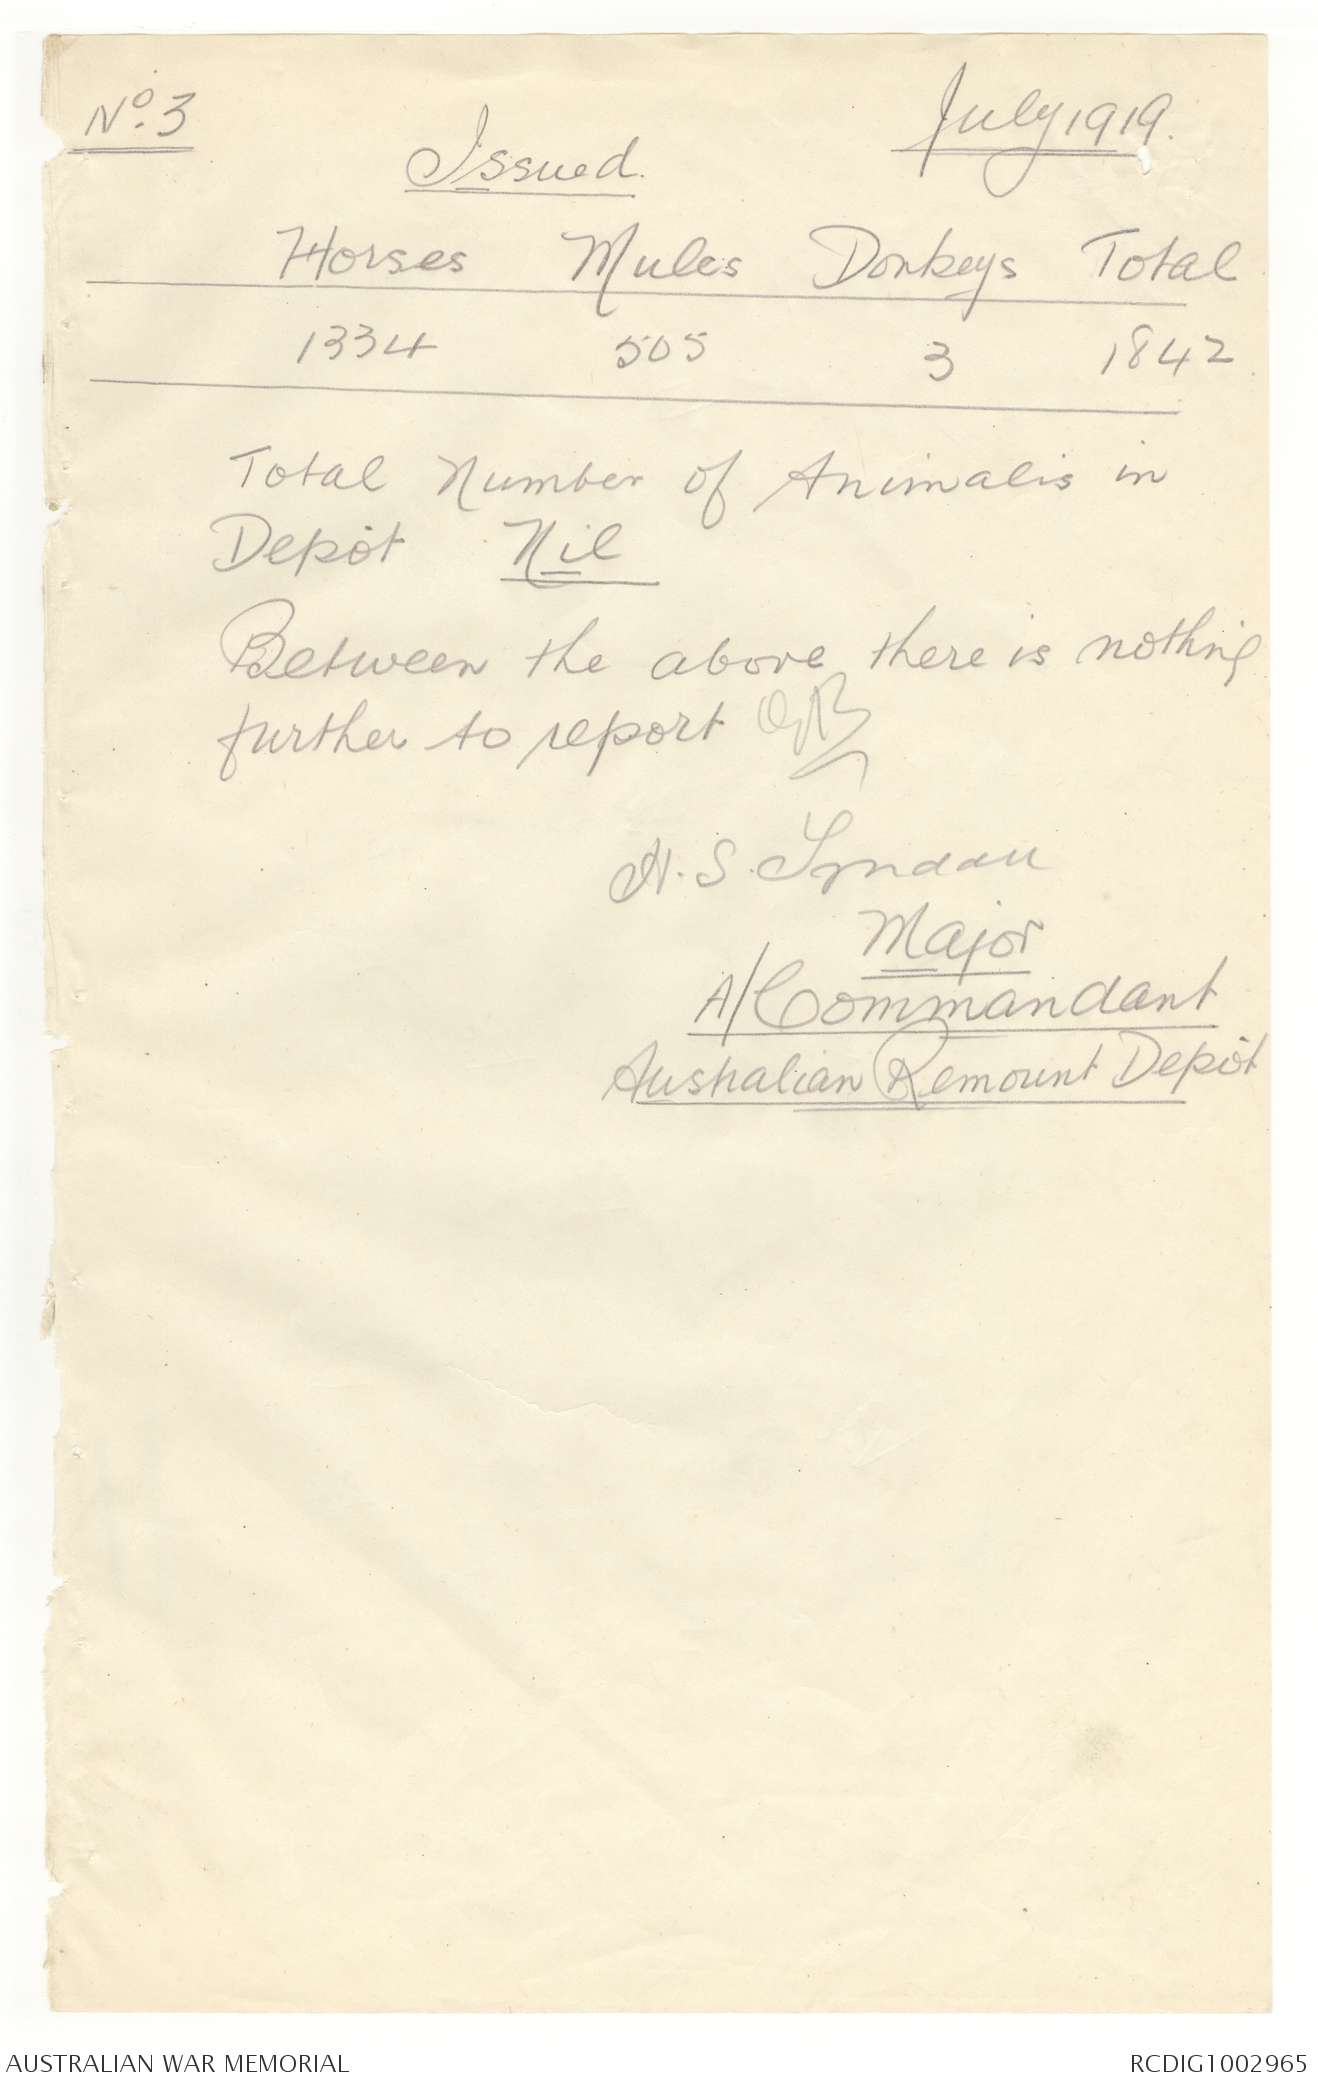 No. 3
July 1919.
Issued.
Horses Mules Donkeys Total
1334 505 3 1842
Total Number of Animals in
Depôt Nil
Between the above there is nothing
further to report
H. S.
Major
A/Commandant
Australian Remount Depôt
AUSTRALIAN WAR MEMORIAL
RCDIG1002965